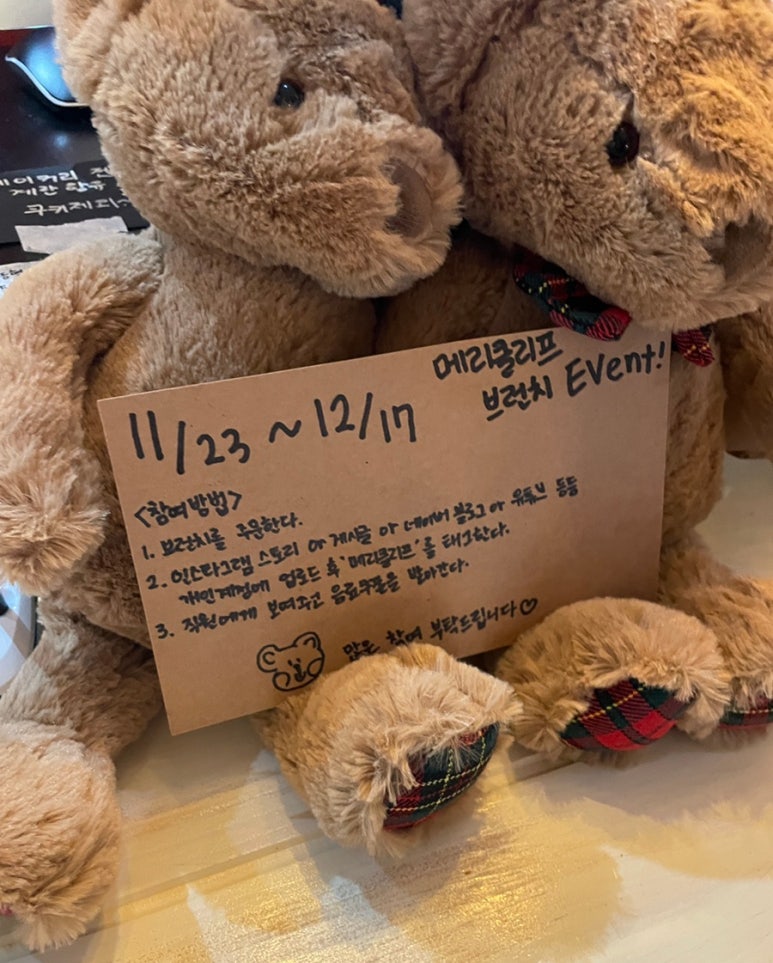 메리클리프
브런치 Event!
11/23 ~ 12/17
<참여방법>
1. 브런치를 주문한다.
2. 인스타그램 스토리 or 게시글 or 네이버 블로그 or 유튜브 등등
개인계정에 업로드 후 '메리클리프'를 태그한다.
3. 직원에게 보여주고 음료쿠폰을 받아간다.
많은 참여 부탁드립니다♡
계란 함유